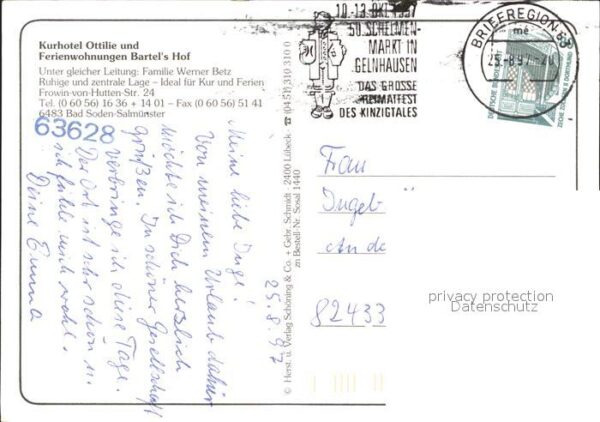 Kurhotel Ottilie und
Ferienwohnungen Bartel's Hof
Unter gleicher Leitung: Familie Werner Betz
Ruhige und zentrale Lage – Ideal für Kur und Ferien
Frowin-von-Hutten-Str. 24
Tel. (0 60 56) 16 36 + 14 01 – Fax (0 60 56) 51 41
6483 Bad Soden-Salmünster
63628
10.-13. OKT. 1997
50. SCHELMEN-
MARKT IN
GELNHAUSEN
DAS GROSSE
HEIMATFEST
DES KINZIGTALES
BRIEFREGION 63
mé
25.-8.97.-20
DEUTSCHE BUNDESPOST
ZECHE ZOLLERN II DORTMUND
25.8.97
Meine liebe Inge!
Von meinem Urlaub daher
möchte ich Dich herzlich
grüßen. In schöner Gesellschaft
verbringe ich diese Tage.
Der Ort ist sehr schön u.
ich fühle mich wohl.
Deine Emma
© Herst. u. Verlag Schöning & Co. + Gebr. Schmidt · 2400 Lübeck · ☎ (04 51) 310 310 0
zn Bestell-Nr. Sosal 1440
Frau
Ingeb
An de
82433
privacy protection
Datenschutz